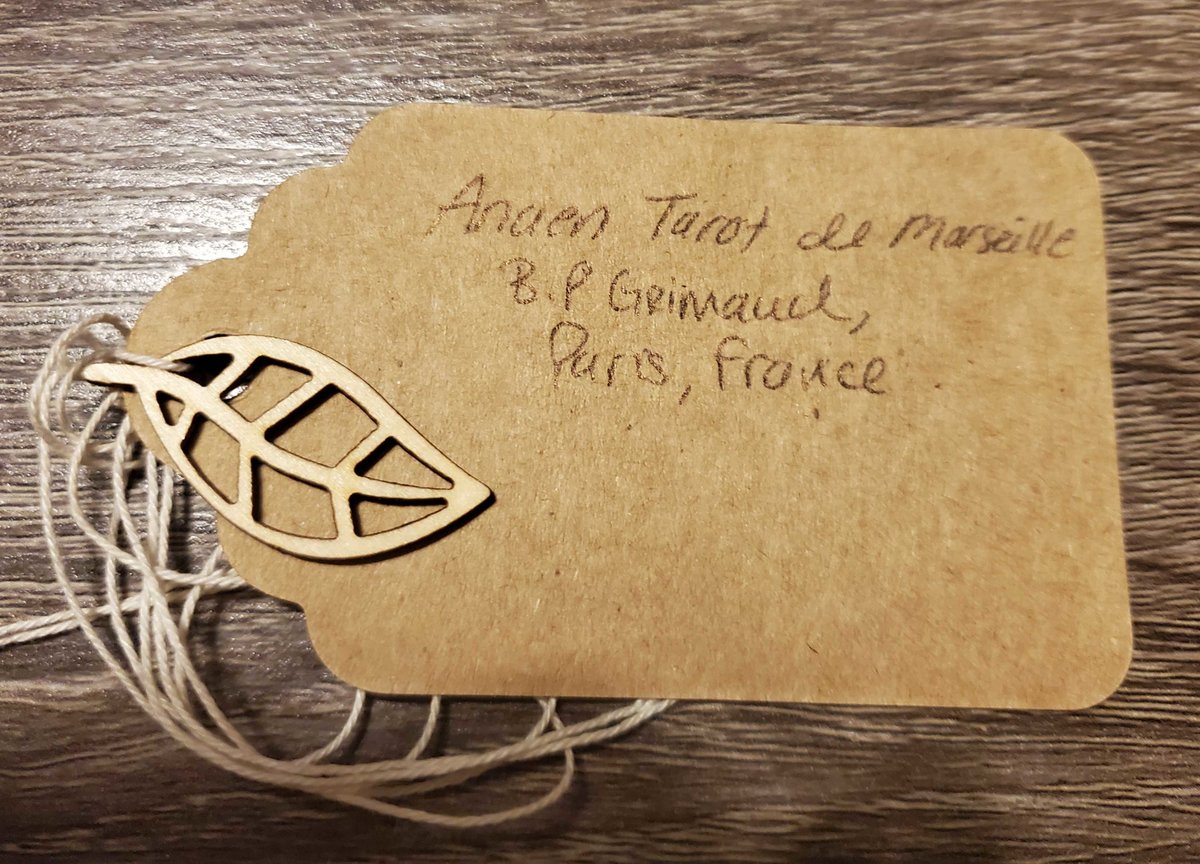 Ancien Tarot de Marseille
B.P Grimaud,
Paris, France